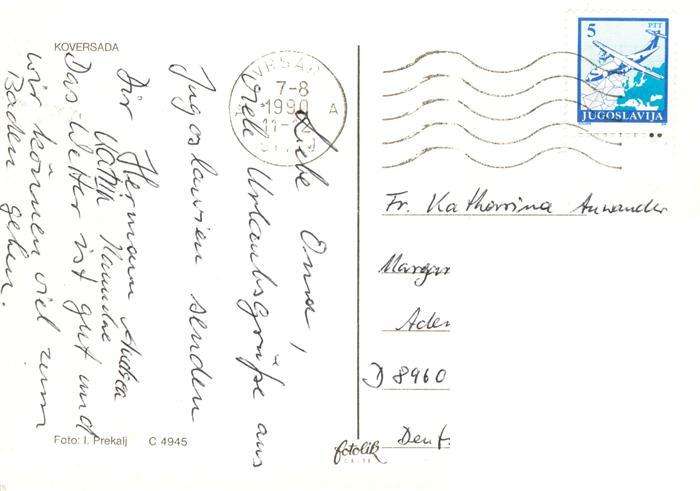 KOVERSADA
Liebe Oma,
Viele Urlaubsgrüße aus
Jugoslawien senden
Dir Hermann Andrea
Karin
Das Wetter ist gut und
wir können viel zum
Baden gehen.
Foto: I. Prekalj C 4945
fotolik
VRSAR
7-8
1990
A
5
PTT
JUGOSLAVIJA
Fr. Katharina Anwander
D 8960